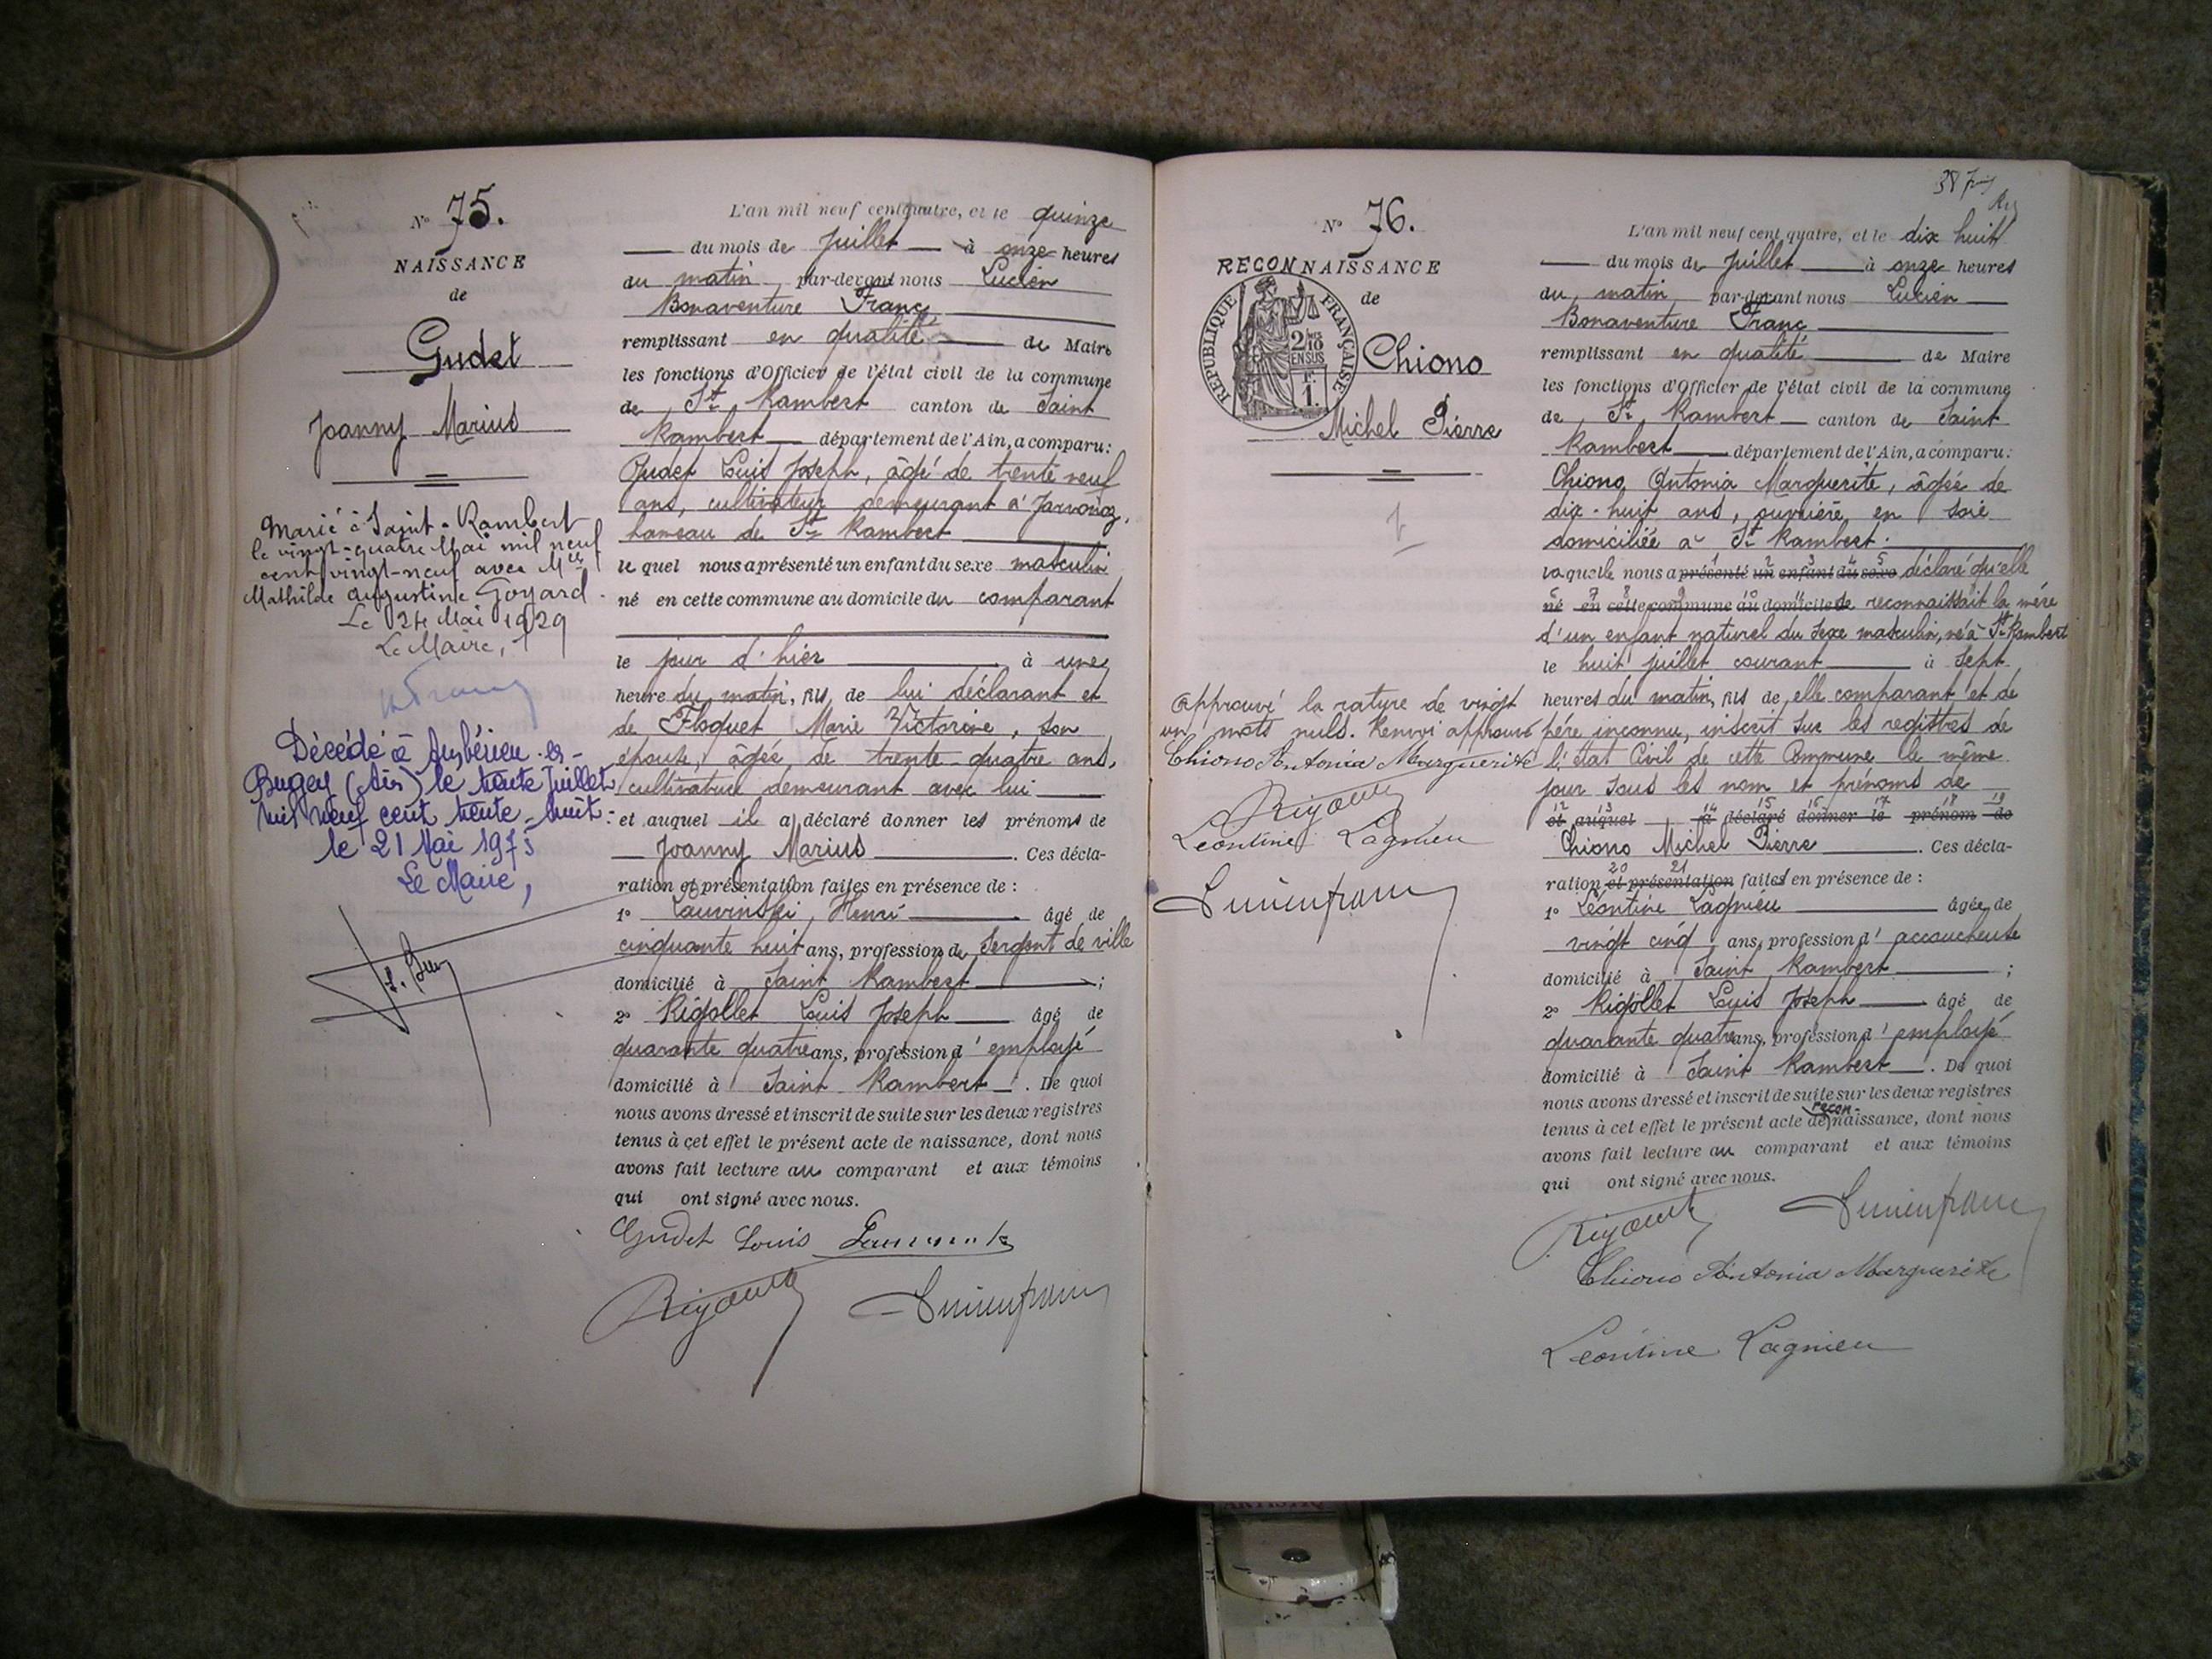 N° 75.
NAISSANCE
de
Gudet
Joanny Marius
Marié à Saint-Rambert
le vingt-quatre Mai mil neuf
cent vingt-neuf avec Mlle
Mathilde Augustine Goyard.
Le 24 Mai 1929
Le Maire,
Décédé à Ambérieu-en-
Bugey (Ain) le trente Juillet
mil neuf cent trente-huit.
le 21 Mai 1975
Le Maire,
L'an mil neuf cent quatre, et le quinze
du mois de Juillet à onze heures
du matin par-devant nous Lucien
Bonaventure Franc
remplissant en qualité de Maire
les fonctions d'Officier de l'état civil de la commune
de St Rambert canton de Saint
Rambert département de l'Ain, a comparu:
Gudet Louis Joseph, âgé de trente neuf
ans, cultivateur demeurant à Javornoz,
hameau de St Rambert
le quel nous a présenté un enfant du sexe masculin
né en cette commune au domicile du comparant
le jour d'hier à une
heure du matin, fils de lui déclarant et
de Floquet Marie Victorine, son
épouse, âgée de trente quatre ans,
cultivatrice demeurant avec lui
et auquel il a déclaré donner les prénoms de
Joanny Marius. Ces décla-
ration et présentation faites en présence de :
1° Lauvinski Henri âgé de
cinquante huit ans, profession de Sergent de ville
domicilié à Saint Rambert ;
2° Rigollet Louis Joseph âgé de
quarante quatre ans, profession d'employé
domicilié à Saint Rambert. De quoi
nous avons dressé et inscrit de suite sur les deux registres
tenus à cet effet le présent acte de naissance, dont nous
avons fait lecture au comparant et aux témoins
qui ont signé avec nous.
Gudet Louis
Lucien franc
N° 76.
RECONNAISSANCE
de
REPUBLIQUE FRANÇAISE
2/10 EN SUS
F. 1.
Chiono
Michel Pierre
Approuvé la rature de vingt
un mots nuls. Renvoi approuvé
Chiono Antonia Marguerite
Léontine Lagnieu
Lucien franc
L'an mil neuf cent quatre, et le dix huit
du mois de Juillet à onze heures
du matin par-devant nous Lucien
Bonaventure Franc
remplissant en qualité de Maire
les fonctions d'Officier de l'état civil de la commune
de St Rambert canton de Saint
Rambert département de l'Ain, a comparu:
Chiono Antonia Marguerite, âgée de
dix-huit ans, ouvrière en soie
domiciliée à St Rambert.
laquelle nous a présenté un enfant du sexe déclaré qu'elle
1 2 3 4 5
né en cette commune au domicile de reconnaissait la mère
6 7 8 9 10 11
d'un enfant naturel du sexe masculin, né à St Rambert
le huit juillet courant à sept
heures du matin, fils de elle comparant et de
père inconnu, inscrit sur les registres de
l'état Civil de cette Commune le même
jour sous les nom et prénoms de
12 13 14 15 16 17 18 19
et auquel a déclaré donner le prénom de
Chiono Michel Pierre. Ces décla-
20 21
ration et présentation faites en présence de :
1° Léontine Lagnieu âgée de
vingt cinq ans, profession d'accoucheuse
domicilié à Saint Rambert ;
2° Rigollet Louis Joseph âgé de
quarante quatre ans, profession d'employé
domicilié à Saint Rambert. De quoi
nous avons dressé et inscrit de suite sur les deux registres
recon-
tenus à cet effet le présent acte de naissance, dont nous
avons fait lecture au comparant et aux témoins
qui ont signé avec nous.
Lucien franc
Chiono Antonia Marguerite
Léontine Lagnieu